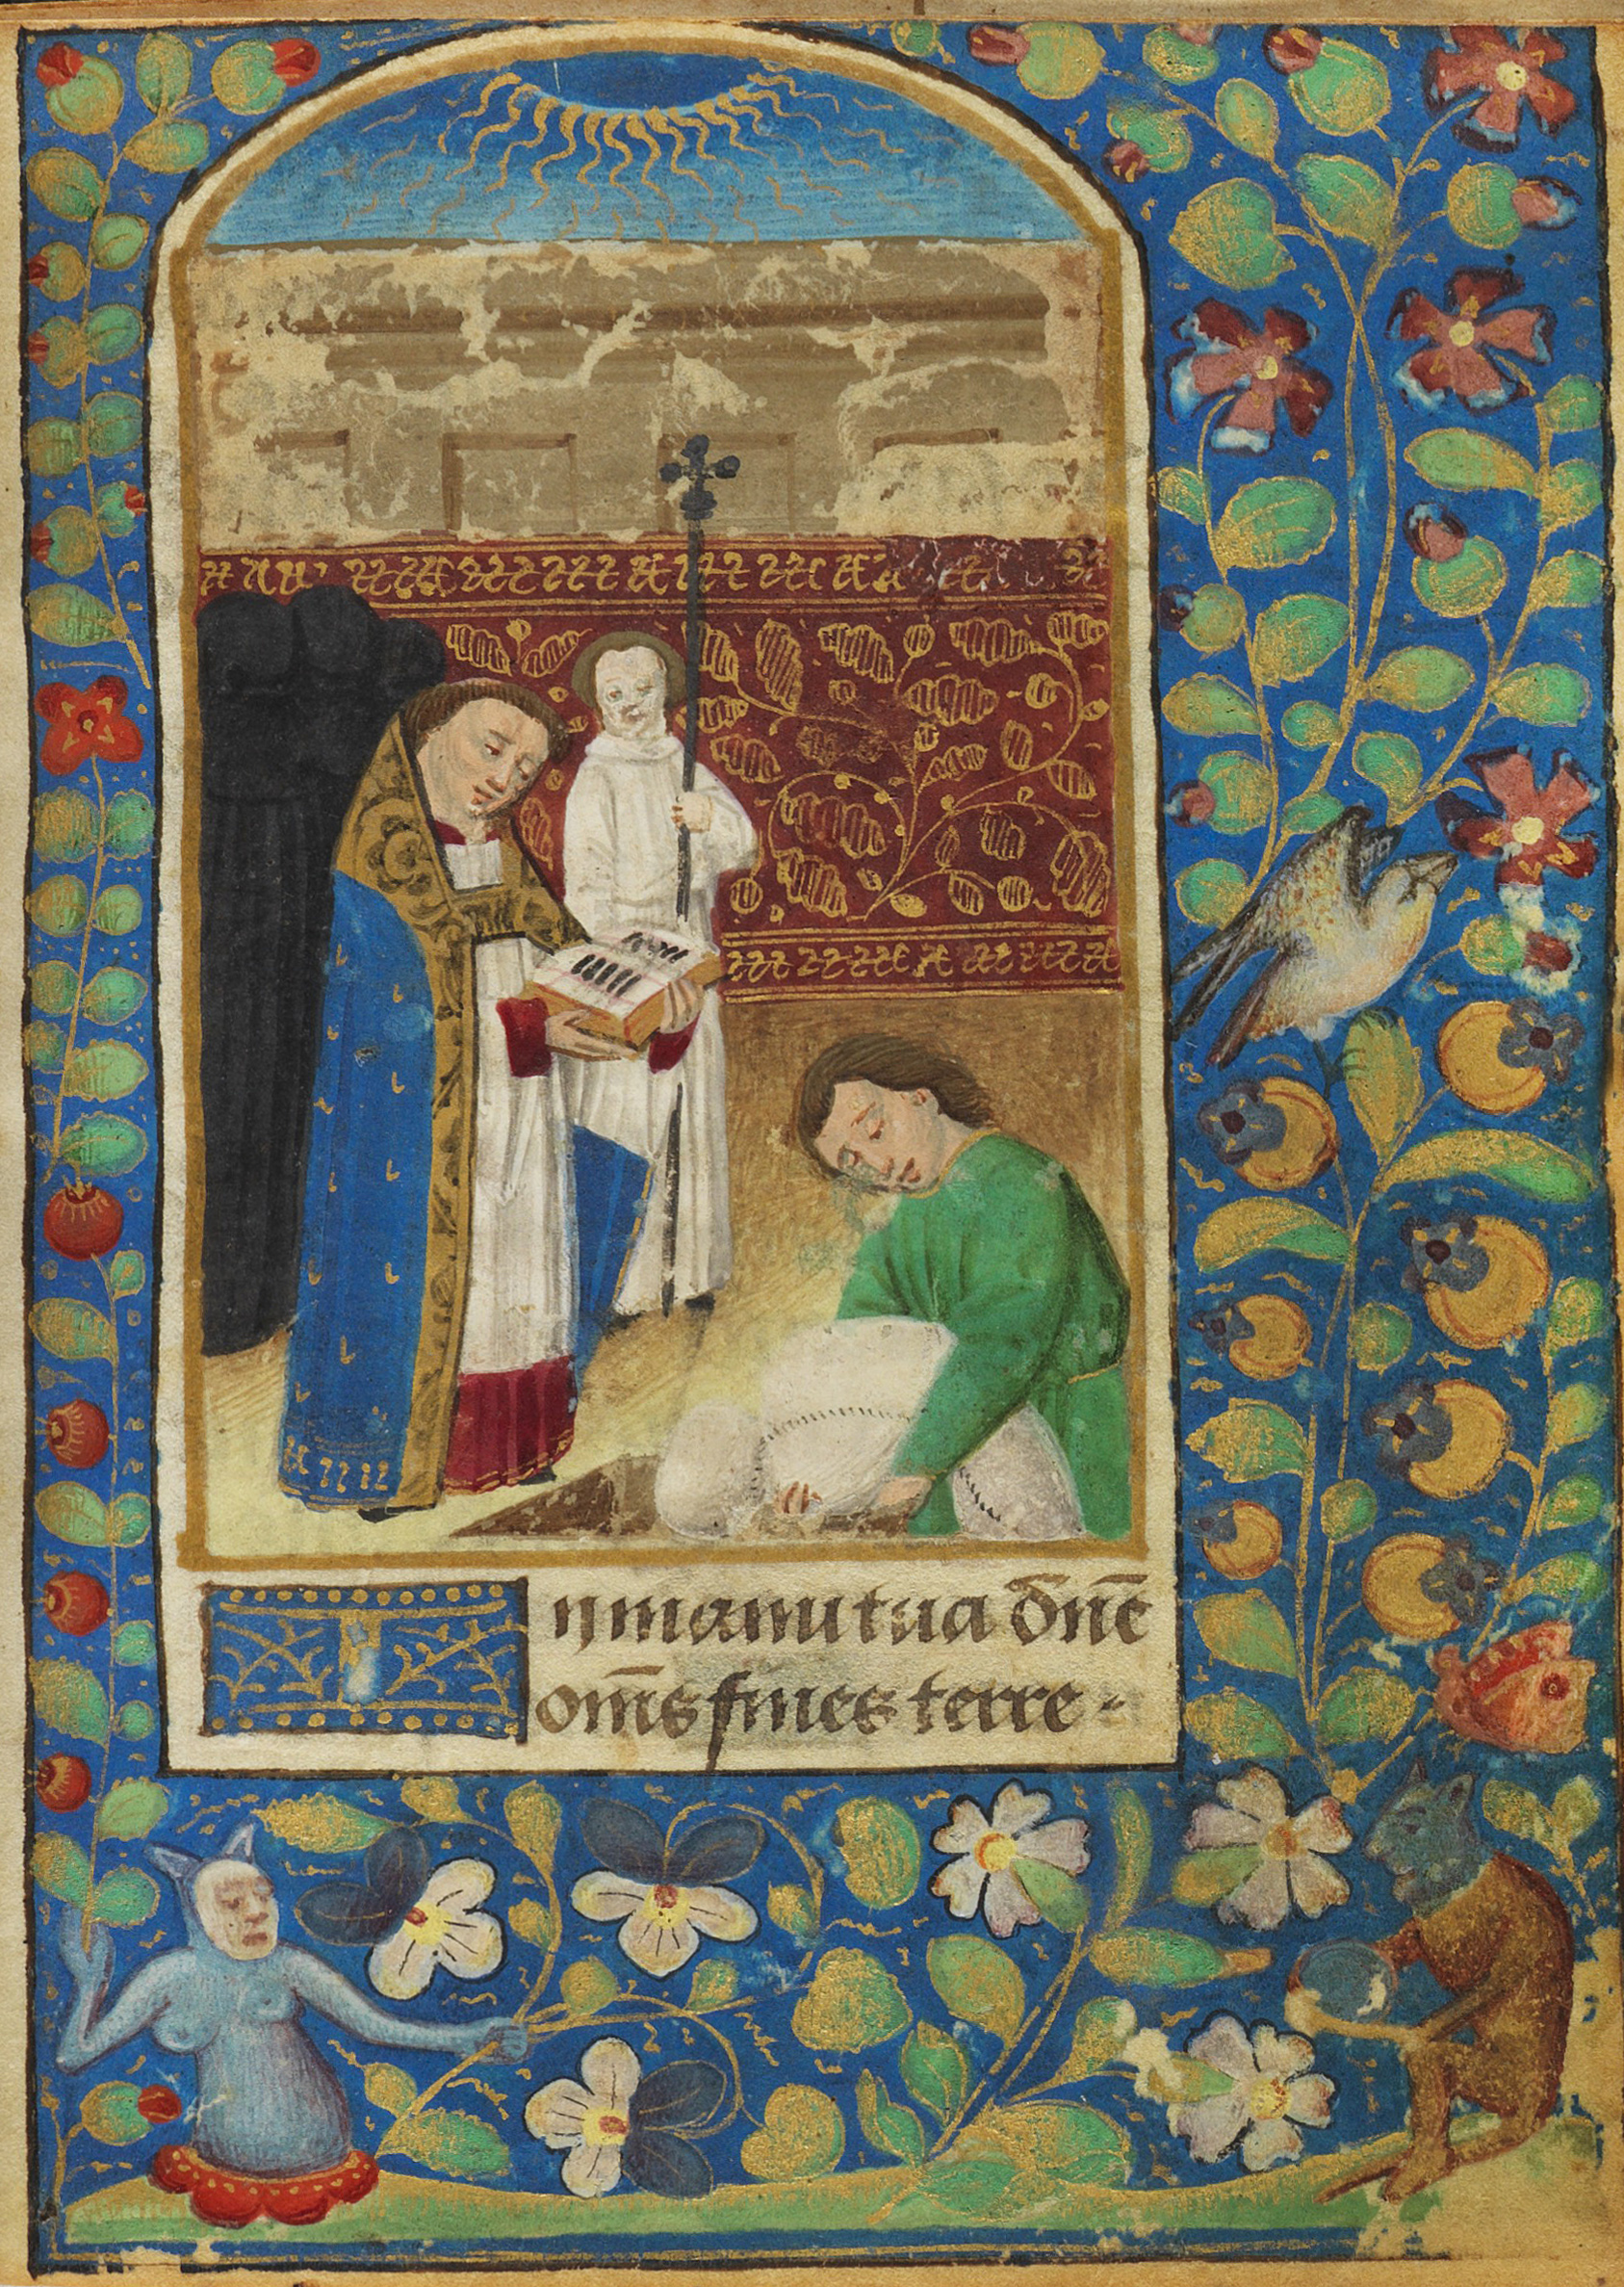 In manu tua dn̄e
om̄s fines terre.